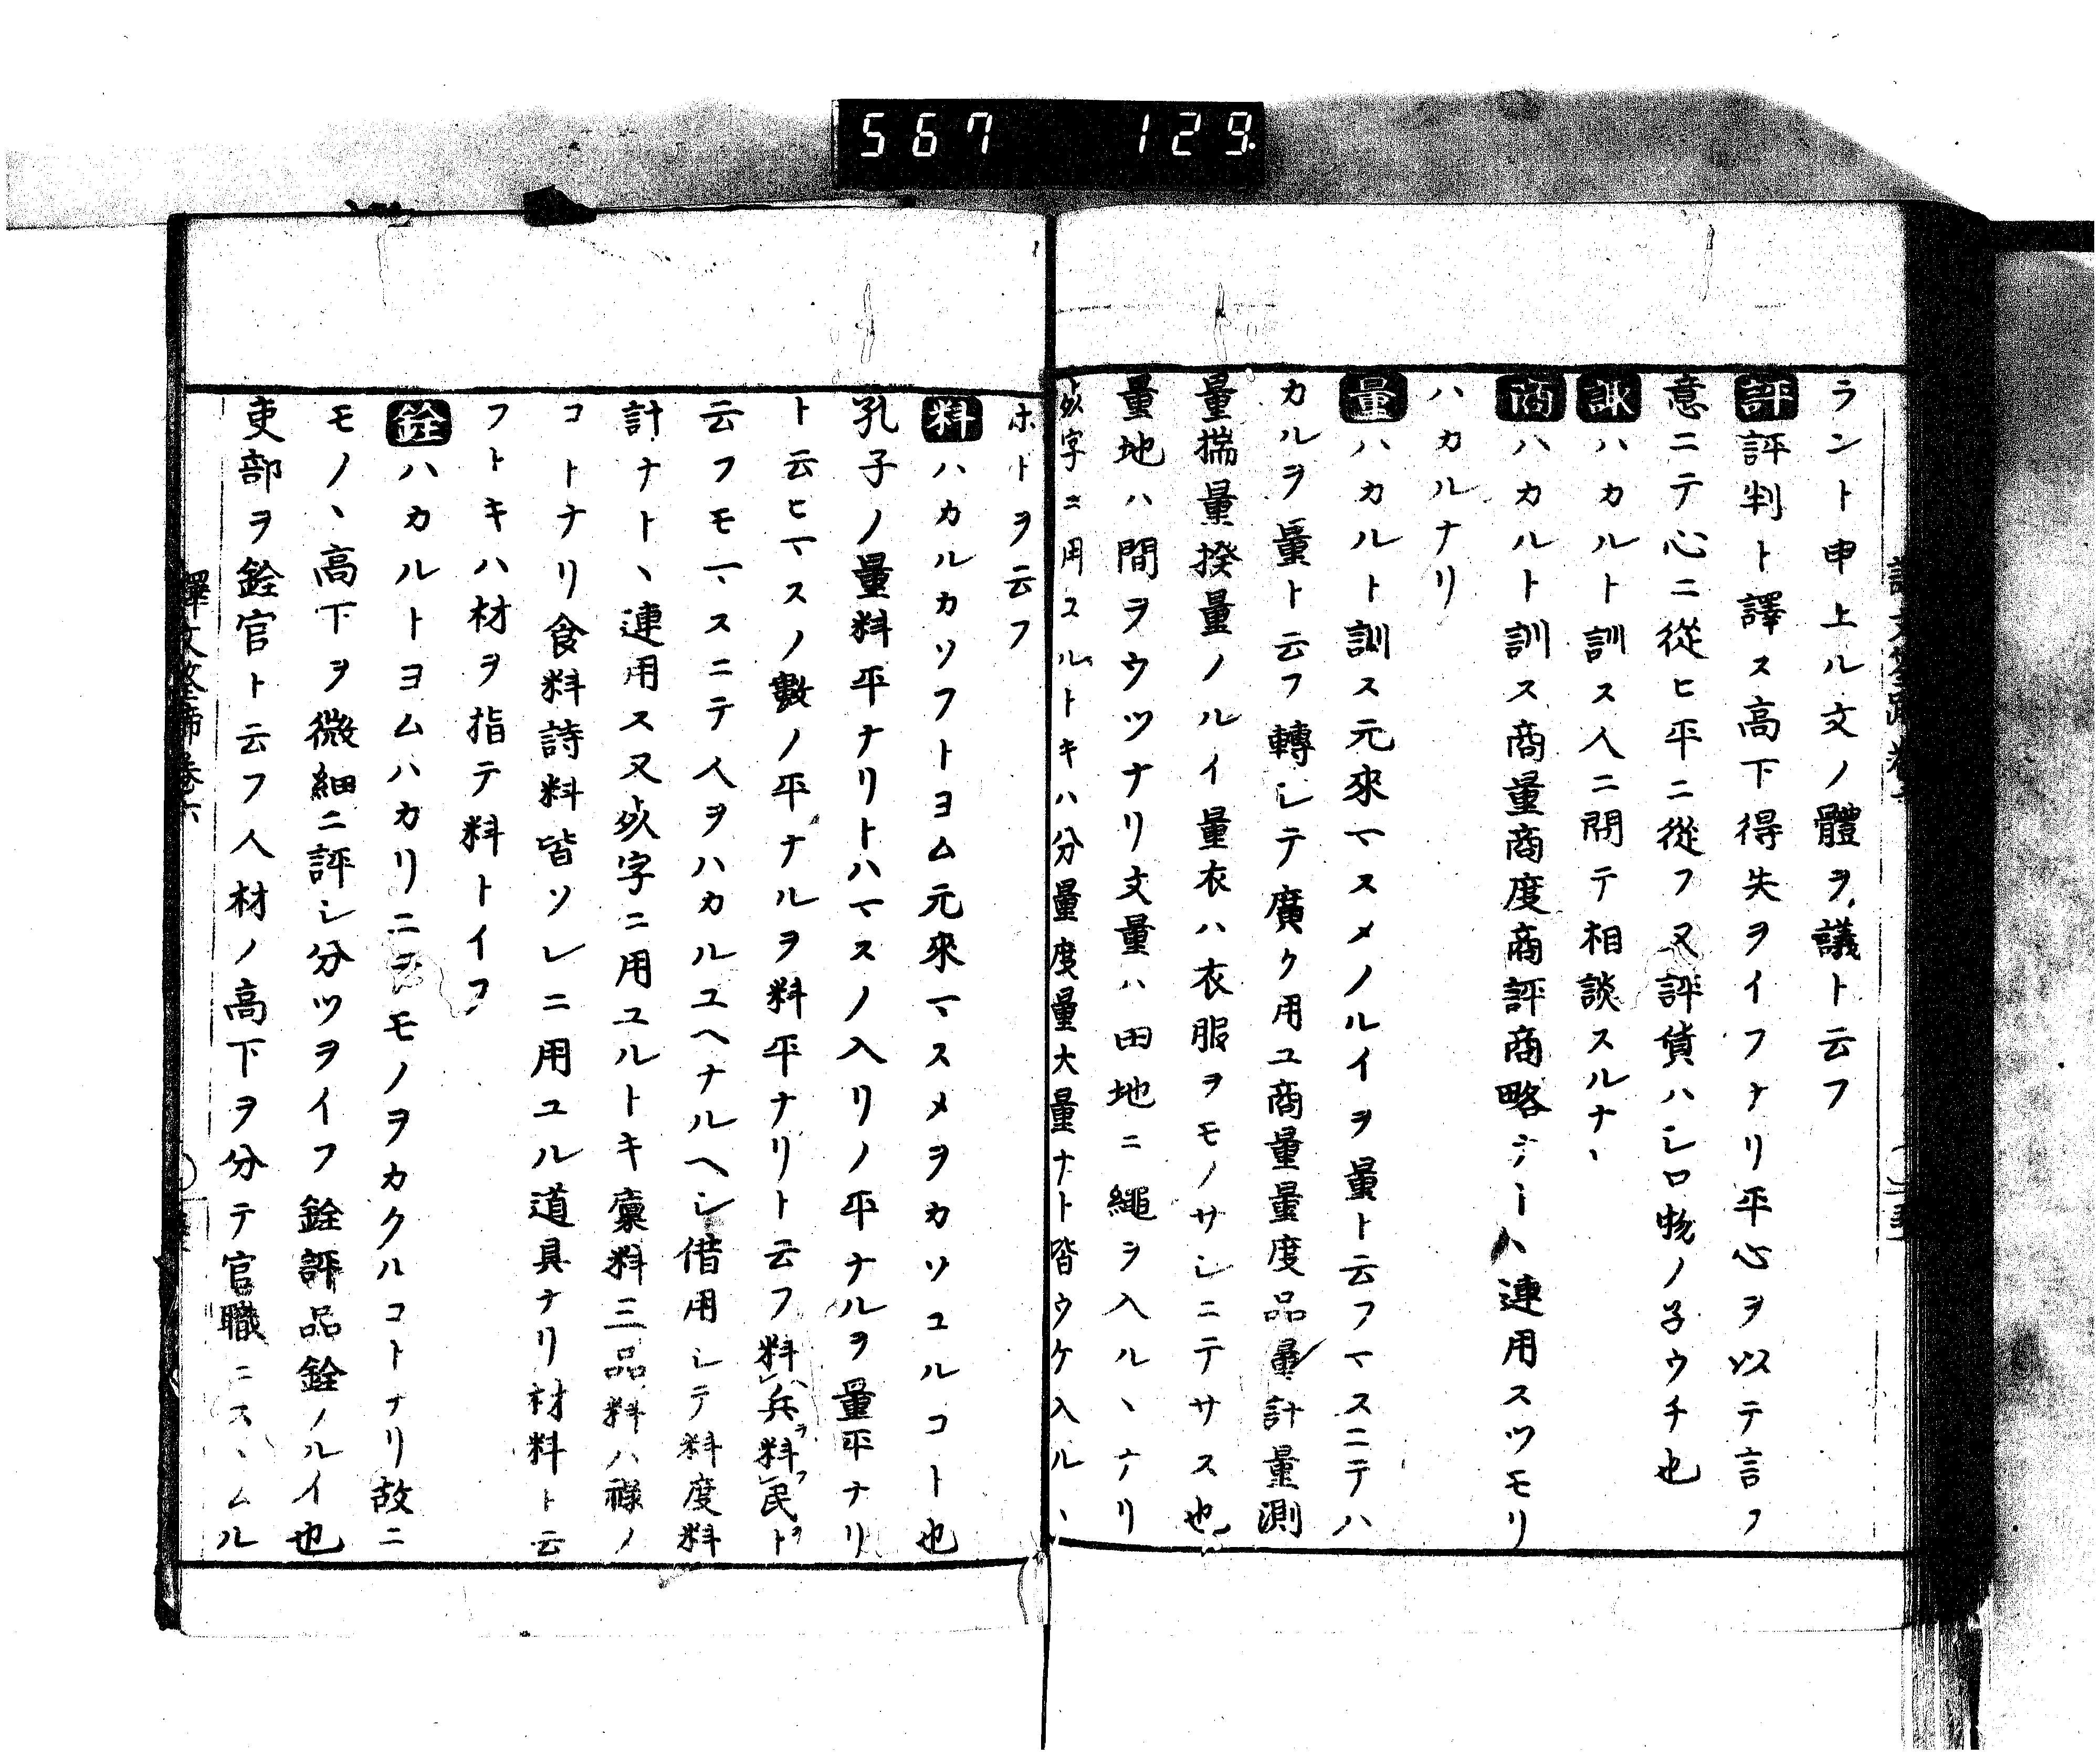 567 129
ラント申上ル文ノ體ヲ議ト云フ
評評判ト譯ス高下得失ヲイフナリ平心ヲ以テ言フ
意ニテ心ニ從ヒ平ニ從フ又評貨ハシロ物ノ子ウチ也
諏ハカルト訓ス人ニ問テ相談スルナヽ
商ハカルト訓ス商量商度商評商略ナトハ連用スツモリ
ハカルナリ
量ハカルト訓ス元來マスメノルイヲ量ト云フマスニテハ
カルヲ量ト云フ轉シテ廣ク用ユ商量量度品量計量測
量揣量揆量ノルイ量衣ハ衣服ヲモノサシニテサス也
量地ハ間ヲウツナリ丈量ハ田地ニ繩ヲ入ルヽナリ
死字ニ用ユルトキハ分量度量大量ナト皆ウケ入ルヽ
ホトヲ云フ
料ハカルカソフトヨム元來マスメヲカソユルコト也
孔子ノ量料平ナリトハマスノ入リノ平ナルヲ量平ナリ
ト云ヒマスノ數ノ平ナルヲ料平ナリト云フ料兵料民ト
云フモマスニテ人ヲハカルユヘナルヘシ借用シテ料度料
計ナトヽ連用ス又死字ニ用ユルトキ廩料三品料ハ祿ノ
コトナリ食料詩料皆ソレニ用ユル道具ナリ材料ト云
フトキハ材ヲ指テ料トイフ
銓ハカルトヨムハカリニテモノヲカクルコトナリ故ニ
モノヽ高下ヲ微細ニ評シ分ツヲイフ銓評品銓ノルイ也
吏部ヲ銓官ト云フ人材ノ高下ヲ分テ官職ニスヽムル
譯文筌蹄卷六